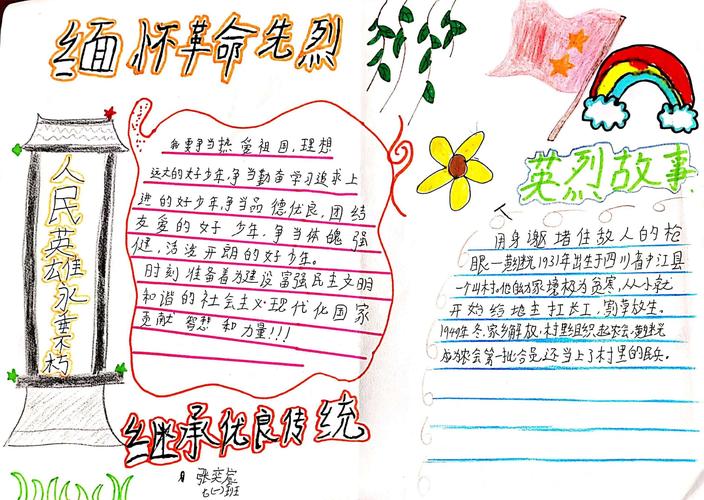 缅怀革命先烈
人民英雄永垂不朽
我要争当热爱祖国,理想
远大的好少年,争当勤奋学习追求上
进的好少年,争当品德优良,团结
友爱的好少年,争当体魄强
健,活泼开朗的好少年。
时刻准备着为建设富强民主文明
和谐的社会主义现代化国家
贡献智慧和力量!!!
继承优良传统
张奕
六(一)班
英烈故事
用身邀堵住敌人的枪
眼—黄继光1931年出生于四川省中江县
一个山村。他的家境极为贫寒,从小就
开始给地主打长工,割草放牛。
1949年冬,家乡解放,村里组织起农会,黄继光
成为农会第一批会员,还当上了村里的民兵。